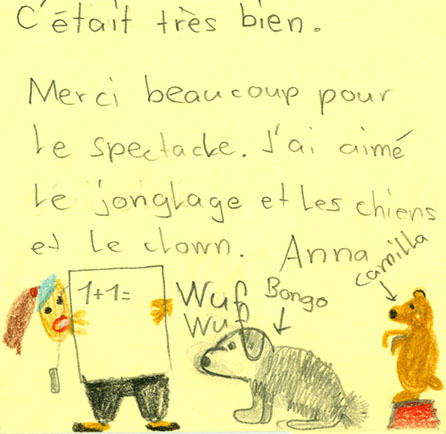 C'était très bien.
Merci beaucoup pour
le spectacle. J'ai aimé
le jonglage et les chiens
et le clown. Anna
Camilla
1+1=
Wuf
Wuf
Bongo